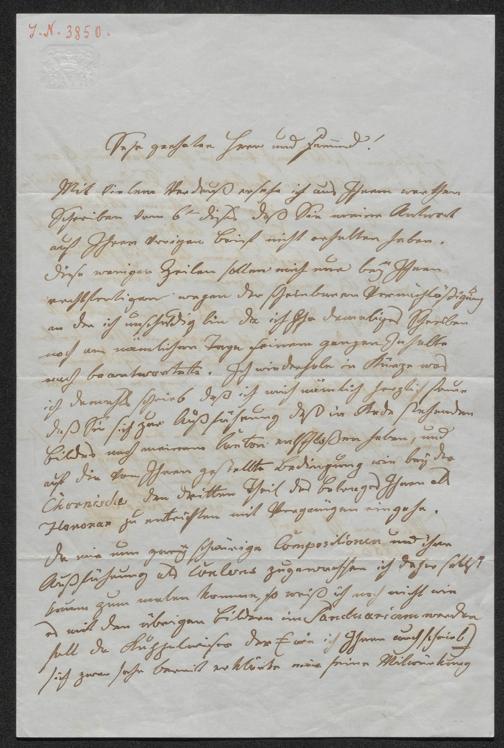 J. N. 3850.
Sehr geehrter Herr und Freund!
Mit vielem Verdruß ersehe ich aus Ihrem werthen
Schreiben vom 6ten dieß daß Sie meine Antwort
auf Ihren vorigen Brief nicht erhalten haben.
Diese wenigen Zeilen sollen mich nur bey Ihnen
rechtfertigen wegen der scheinbaren Vernachläßigung
an der ich unschuldig bin da ich Ihr damaliges Schreiben
noch am nämlichen Tage seinem ganzen Inhalte
nach beantwortete. Ich wiederhole in Kürze was
ich damahls schrieb daß ich mich nämlich herzlich freue
daß Sie sich zur Ausführung des in Rede stehenden
Bildes nach meinem Carton entschloßen haben, und
auf die von Ihnen gestellte Bedingung wie bey der
den dritten Theil des Betrages Ihnen als
Honorar zu entrichten mit Vergnügen eingehe.
Da mir nun zwey schwierige Compositionen und ihre
Ausführung als Cartons zugewachsen ich daher selbst
kaum zum malen komme, so weiß ich noch nicht wie
es mit den übrigen Bildern im Sanctuarium werden
soll da Kuppelwieser der wie ich Ihnen schrieb
sich zwar sehr bereit erklärte mir seine Mitwirkung